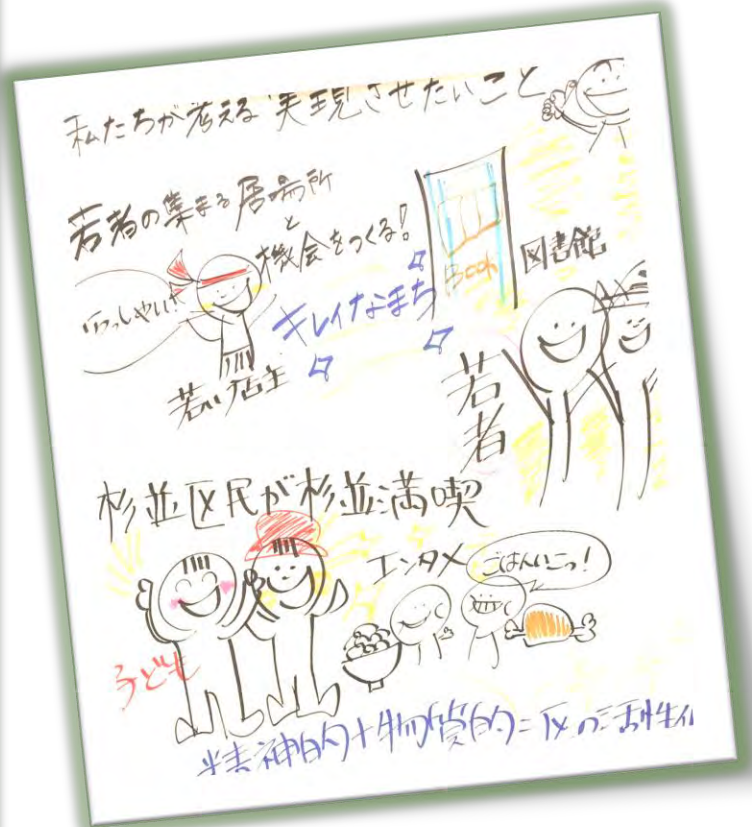 私たちが考える実現させたいこと
若者の集まる居場所
と
機会をつくる！
いらっしゃい！
若い店主
キレイなまち
Book
図書館
若者
杉並区民が杉並満喫
エンタメ
ごはんいこっ！
子ども
精神的＋物質的＝区の活性化